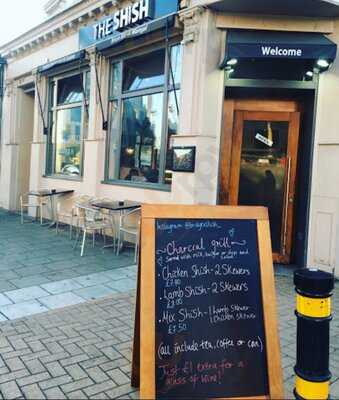 THE SHISH
Welcome
Instagram @
Charcoal Grill
Served with rice, bulgur or chips and
Salad
Chicken Shish - 2 Skewers
£7.90
Lamb Shish - 2 Skewers
Mix Shish - 1 lamb skewer
1 Chicken Skewer
(all include tea, coffee or can)
Just £1 extra for a
glass of Wine!